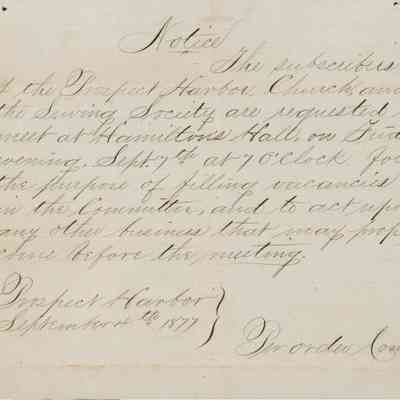 Notice
The subscribers
of the Prospect Harbor Church and
the Sewing Society are requested
meet at Hamiltons Hall, on
evening, Sept. 7th at 7 O'Clock for
the purpose of filling vacancies
in the Committee, and to act upo
any other business that may prop
come before the meeting.
Prospect Harbor
September 4th 1877
Per order Com